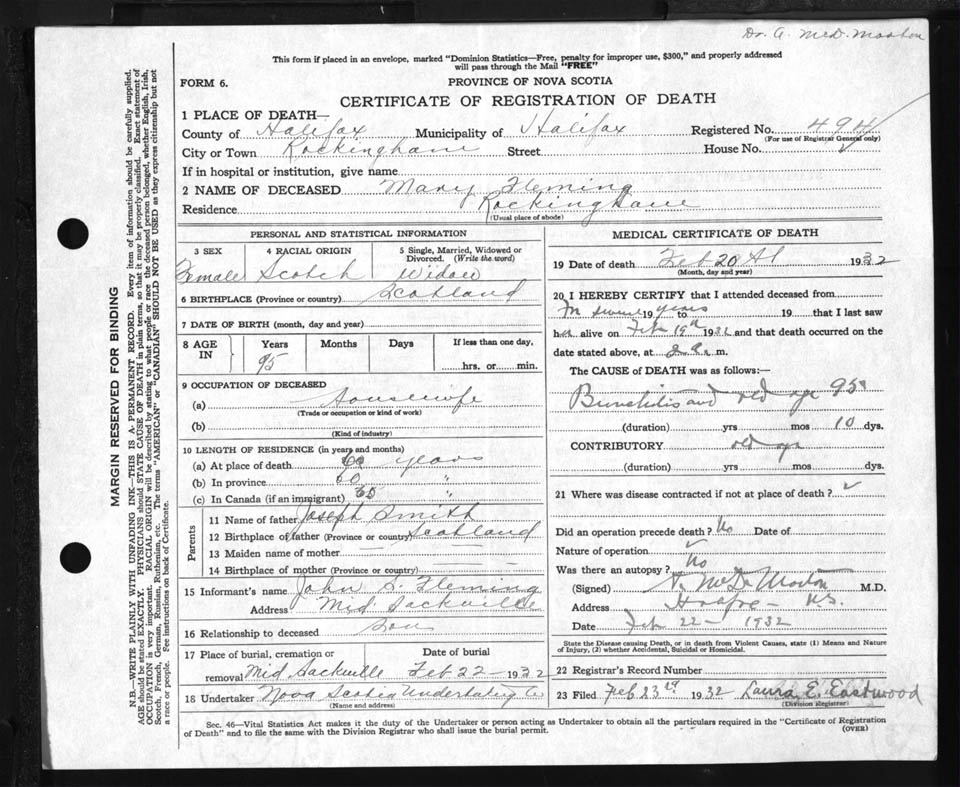 Dr. A. McD. Morton
This form if placed in an envelope, marked "Dominion Statistics—Free, penalty for improper use, $300," and properly addressed
will pass through the Mail "FREE"
FORM 6.
PROVINCE OF NOVA SCOTIA
CERTIFICATE OF REGISTRATION OF DEATH
1 PLACE OF DEATH—
County of Halifax Municipality of Halifax Registered No. 494
(For use of Registrar General only)
City or Town Rockingham Street House No.
If in hospital or institution, give name
2 NAME OF DECEASED Mary Fleming
Residence Rockingham
(Usual place of abode)
PERSONAL AND STATISTICAL INFORMATION
3 SEX 4 RACIAL ORIGIN 5 Single, Married, Widowed or
Divorced. (Write the word)
Female Scotch Widow
6 BIRTHPLACE (Province or country) Scotland
7 DATE OF BIRTH (month, day and year)
8 AGE IN Years Months Days If less than one day,
95 hrs. or min.
9 OCCUPATION OF DECEASED
(a) Housewife
(Trade or occupation or kind of work)
(b)
(Kind of industry)
10 LENGTH OF RESIDENCE (in years and months)
(a) At place of death 60 years
(b) In province 60 "
(c) In Canada (if an immigrant) 60 "
Parents
11 Name of father Joseph Smith
12 Birthplace of father (Province or country) Scotland
13 Maiden name of mother — —
14 Birthplace of mother (Province or country) — —
15 Informant's name John S. Fleming
Address Mid. Sackville
16 Relationship to deceased Son
17 Place of burial, cremation or Date of burial
removal Mid Sackville Feb 22 1932
18 Undertaker Nova Scotia Undertaking Co
(Name and address)
MEDICAL CERTIFICATE OF DEATH
19 Date of death Feb 20 1932
(Month, day and year)
20 I HEREBY CERTIFY that I attended deceased from
19 years to 19 that I last saw
her alive on Feb 19th 1932 and that death occurred on the
date stated above, at 2 a. m.
The CAUSE of DEATH was as follows:—
Bronchitis and old age 95
(duration) yrs mos 10 dys.
CONTRIBUTORY old age
(duration) yrs mos dys.
21 Where was disease contracted if not at place of death?
Did an operation precede death? No Date of
Nature of operation
Was there an autopsy? No
(Signed) A. McD. Morton M.D.
Address Halifax N.S.
Date Feb 22 — 1932
State the Disease causing Death, or in death from Violent Causes, state (1) Means and Nature
of Injury, (2) whether Accidental, Suicidal or Homicidal.
22 Registrar's Record Number
23 Filed Feb 23rd 1932 Laura E. Eastwood
(Division Registrar)
Sec. 46—Vital Statistics Act makes it the duty of the Undertaker or person acting as Undertaker to obtain all the particulars required in the "Certificate of Registration
of Death" and to file the same with the Division Registrar who shall issue the burial permit.
(OVER)
MARGIN RESERVED FOR BINDING
N.B.—WRITE PLAINLY WITH UNFADING INK—THIS IS A PERMANENT RECORD. Every item of information should be carefully supplied.
AGE should be stated EXACTLY. PHYSICIANS should STATE CAUSE OF DEATH in plain terms, so that it may be properly classified. Exact statement of
OCCUPATION is very important. RACIAL ORIGIN will be described by stating to what people or race the deceased person belonged, whether English, Irish,
Scotch, French, German, Russian, Ruthenian, etc. The terms "AMERICAN" or "CANADIAN" SHOULD NOT BE USED as they express citizenship but not
a race or people. See instructions on back of Certificate.